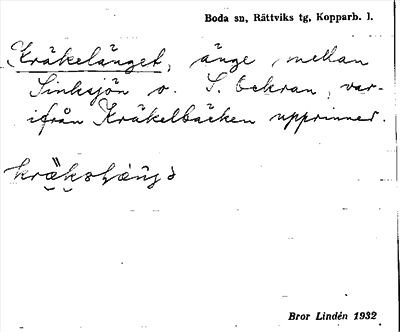 Boda sn, Rättviks tg, Kopparb. l.
Kräkelänget, änge mellan
Sinksjön o. S. Eckran, var-
ifrån Kräkelbäcken upprinner.
Bror Lindén 1932